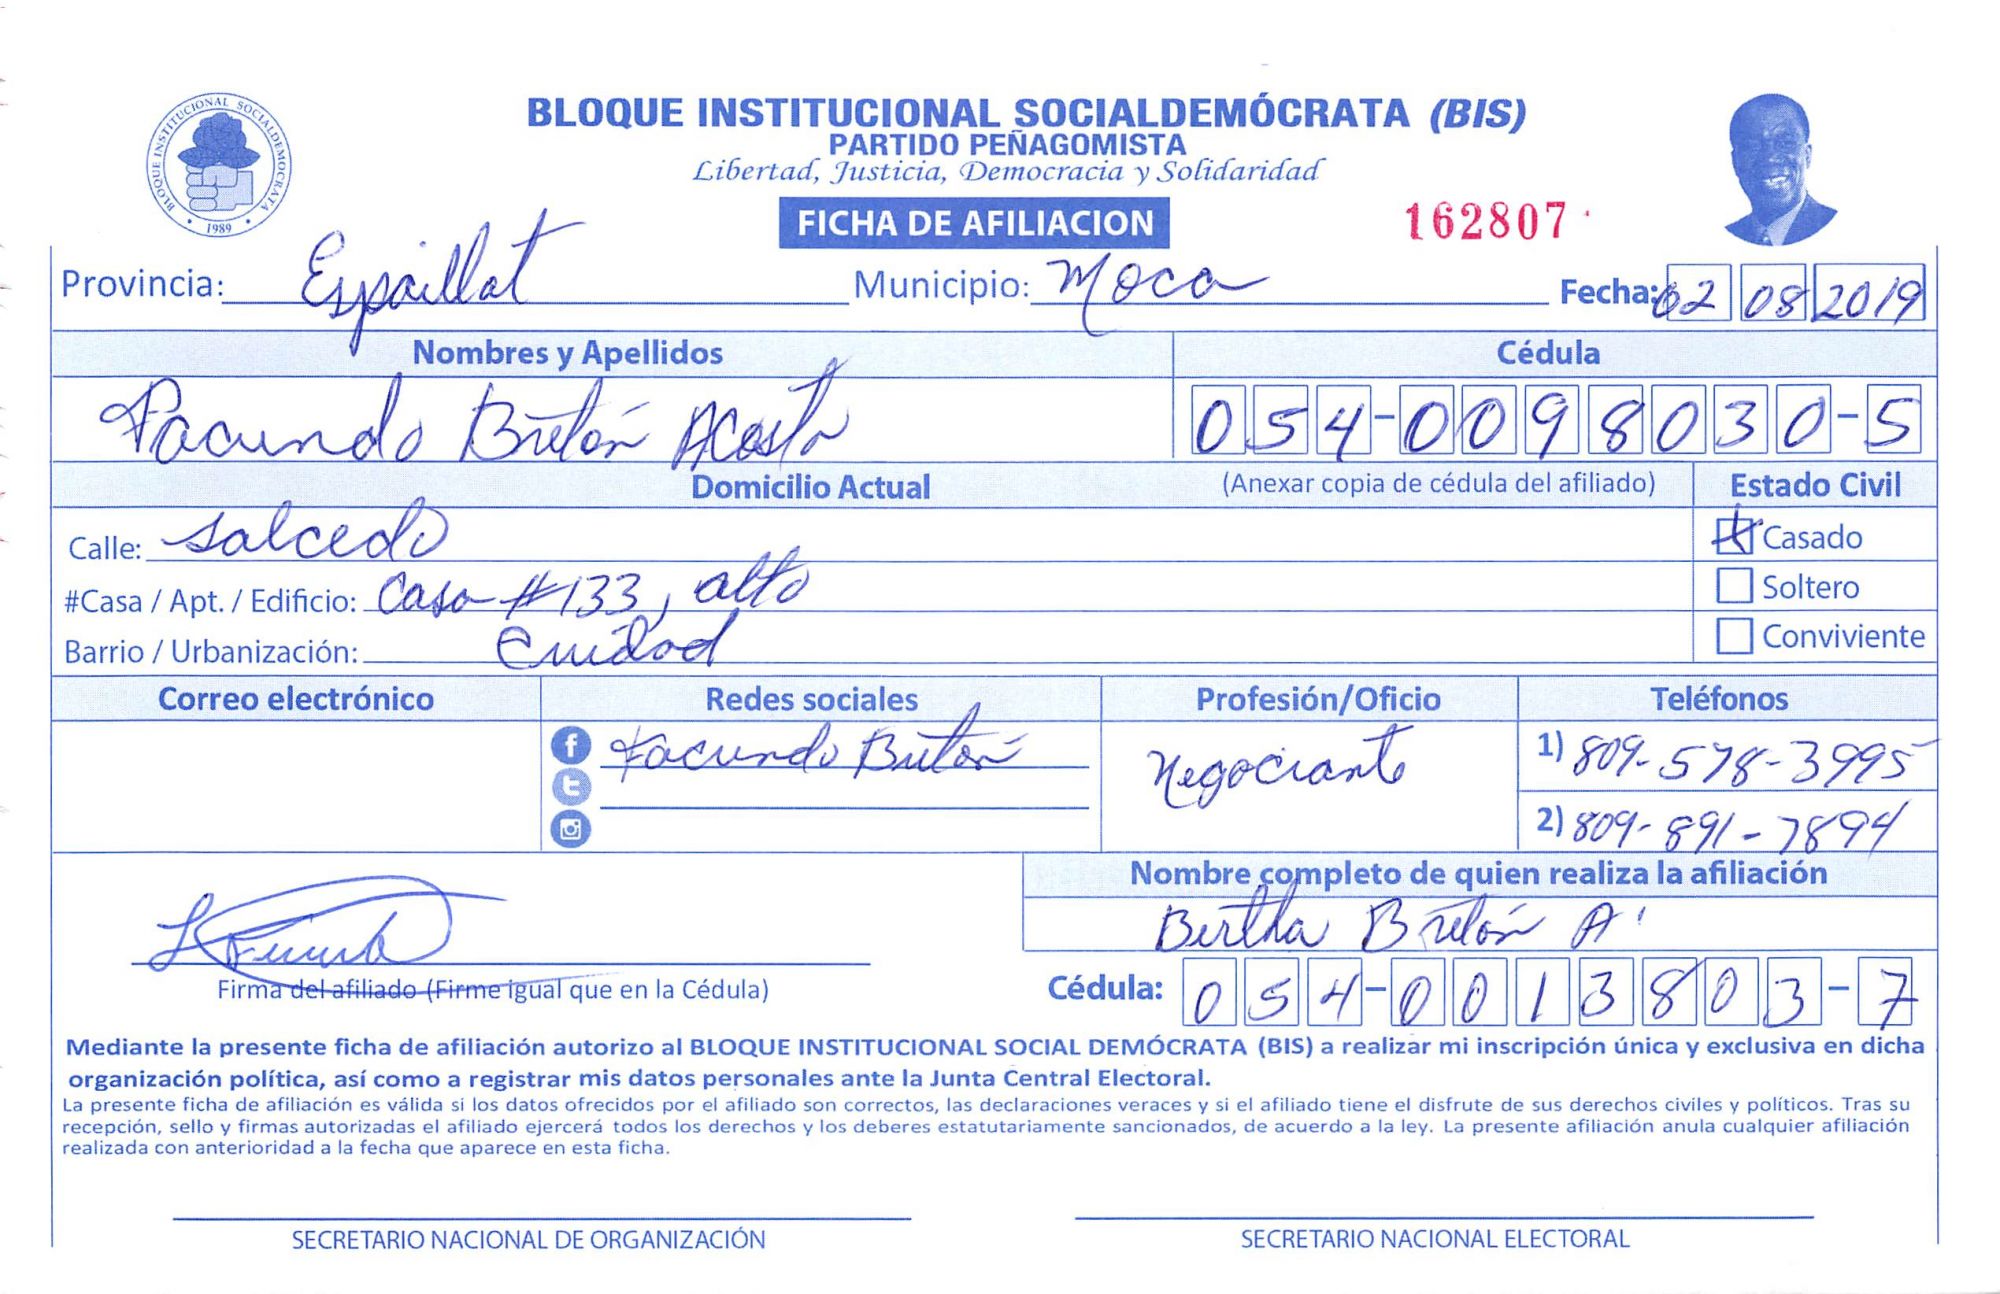 BLOQUE INSTITUCIONAL SOCIALDEMOCRATA
1989
BLOQUE INSTITUCIONAL SOCIALDEMÓCRATA (BIS)
PARTIDO PEÑAGOMISTA
Libertad, Justicia, Democracia y Solidaridad
FICHA DE AFILIACION
162807
Provincia: Espaillat Municipio: Moca Fecha: 02 08 2019
Nombres y Apellidos Cédula
Facundo Bretón Acosta 054-0098030-5
Domicilio Actual (Anexar copia de cédula del afiliado) Estado Civil
Calle: Salcedo X Casado
#Casa / Apt. / Edificio: Casa #133, alto Soltero
Barrio / Urbanización: Ciudad Conviviente
Correo electrónico Redes sociales Profesión/Oficio Teléfonos
Facundo Bretón Negociante 1) 809-578-3995
2) 809-891-7894
Nombre completo de quien realiza la afiliación
Bertha Bretón A
Firma del afiliado (Firme igual que en la Cédula) Cédula: 054-0013803-7
Mediante la presente ficha de afiliación autorizo al BLOQUE INSTITUCIONAL SOCIAL DEMÓCRATA (BIS) a realizar mi inscripción única y exclusiva en dicha
organización política, así como a registrar mis datos personales ante la Junta Central Electoral.
La presente ficha de afiliación es válida si los datos ofrecidos por el afiliado son correctos, las declaraciones veraces y si el afiliado tiene el disfrute de sus derechos civiles y políticos. Tras su
recepción, sello y firmas autorizadas el afiliado ejercerá todos los derechos y los deberes estatutariamente sancionados, de acuerdo a la ley. La presente afiliación anula cualquier afiliación
realizada con anterioridad a la fecha que aparece en esta ficha.
SECRETARIO NACIONAL DE ORGANIZACIÓN SECRETARIO NACIONAL ELECTORAL